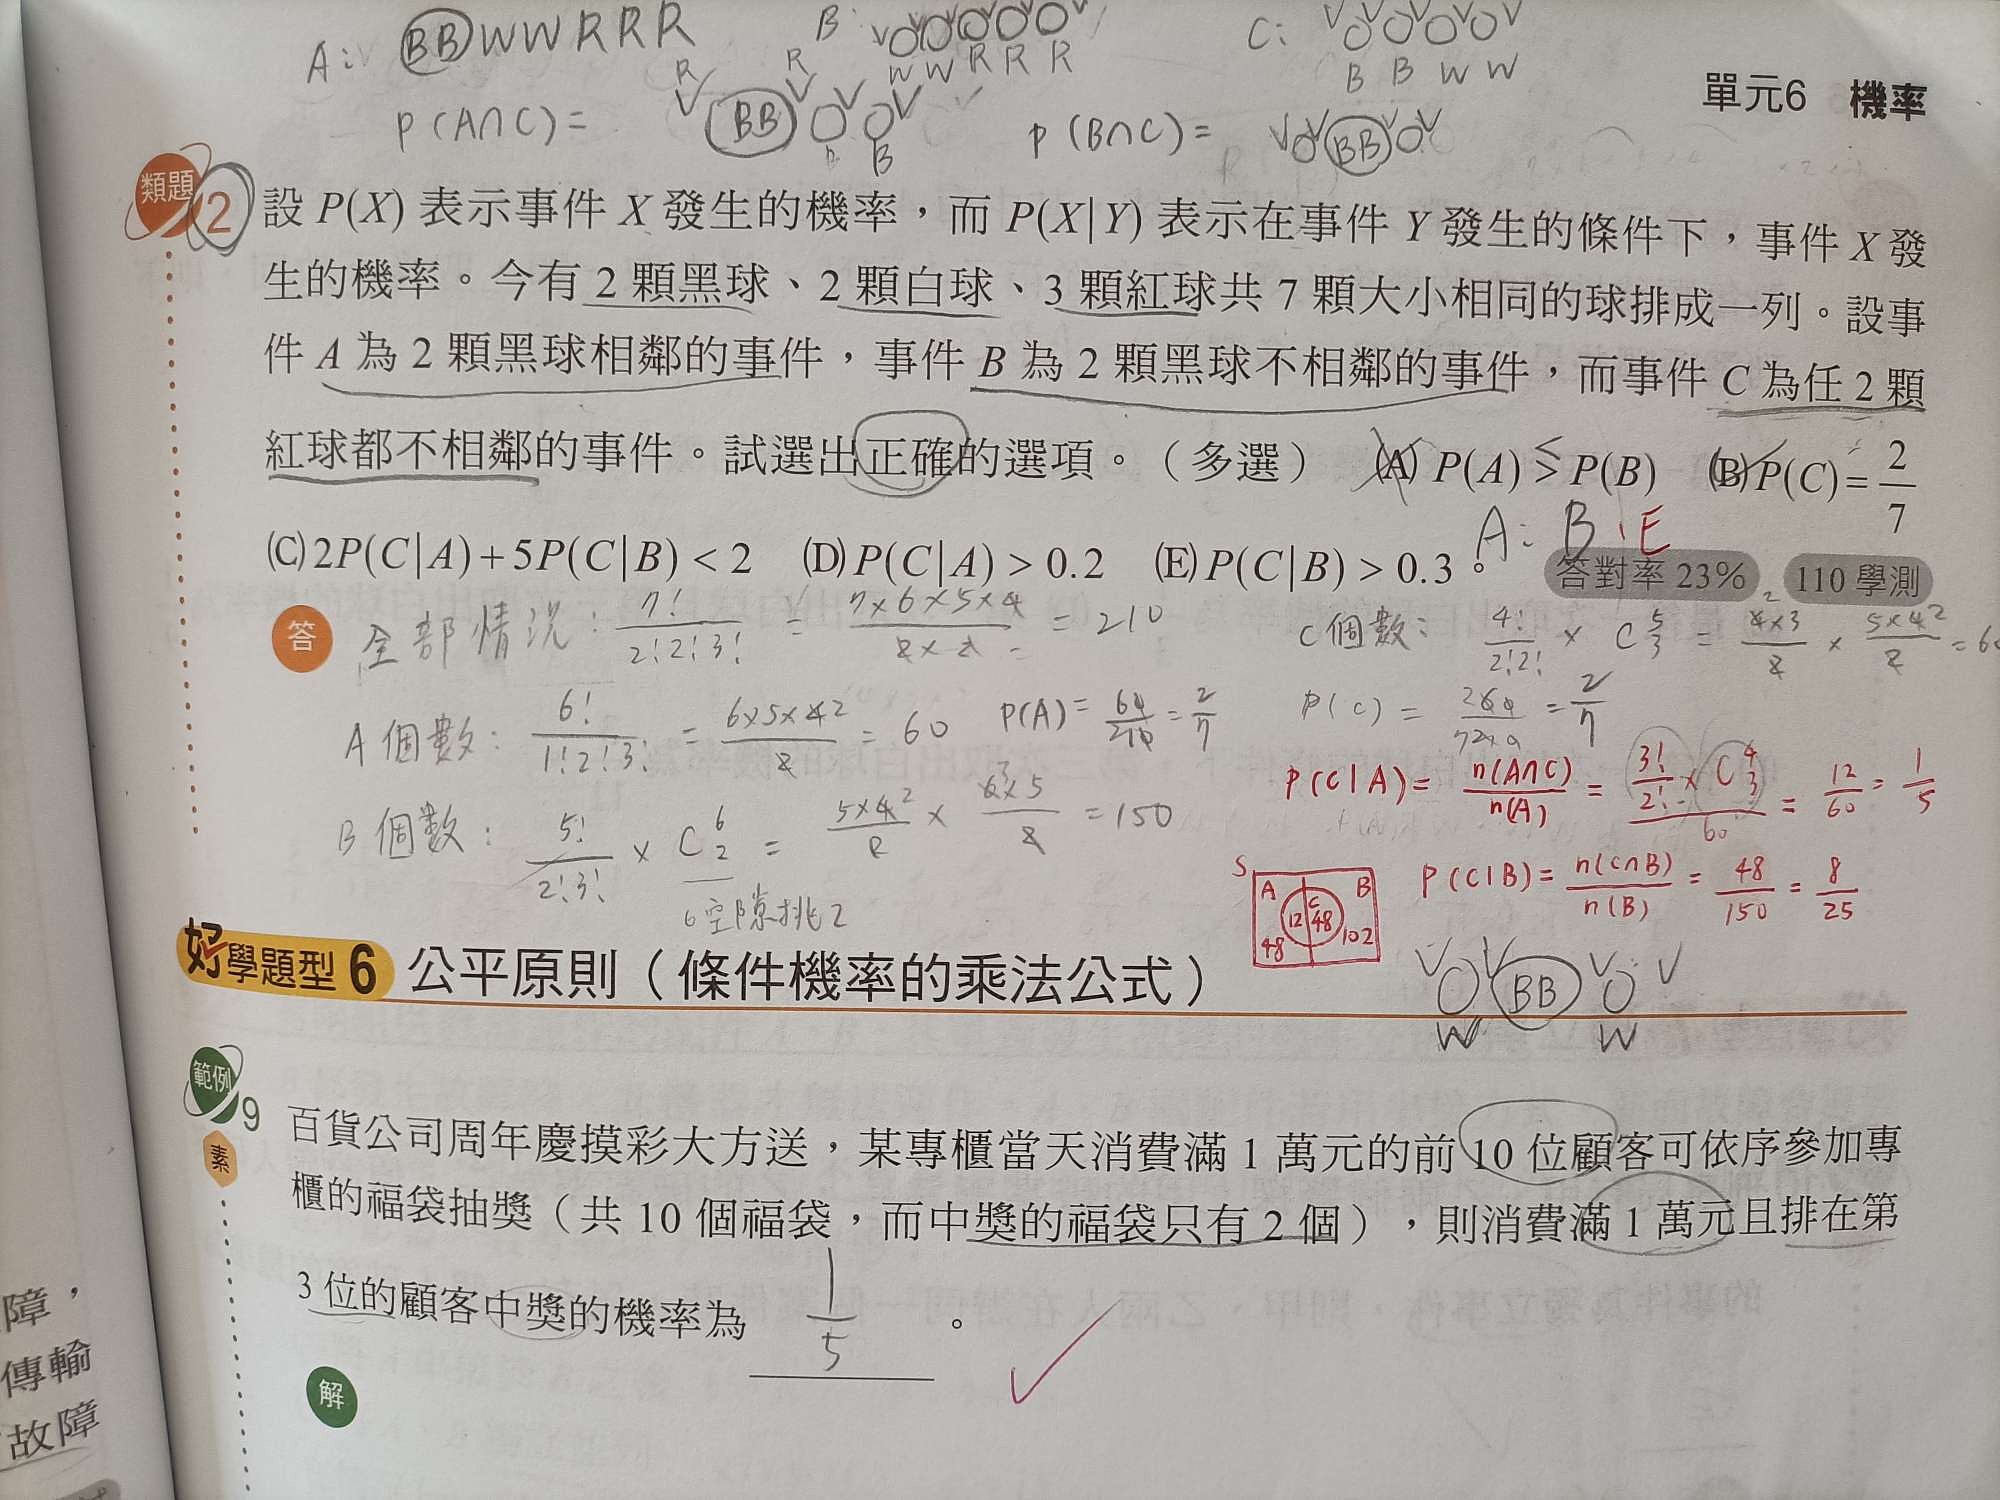 A: BBWWRRR B: WWRRR C: BBWW
P(A∩C)= R R BB B P(B∩C)= BB
單元6 機率
類題2 設 P(X) 表示事件 X 發生的機率，而 P(X|Y) 表示在事件 Y 發生的條件下，事件 X 發
生的機率。今有 2 顆黑球、2 顆白球、3 顆紅球共 7 顆大小相同的球排成一列。設事
件 A 為 2 顆黑球相鄰的事件，事件 B 為 2 顆黑球不相鄰的事件，而事件 C 為任 2 顆
紅球都不相鄰的事件。試選出正確的選項。（多選） (A) P(A) > P(B) (B) P(C) = 2/7
(C) 2P(C|A)+5P(C|B) < 2 (D) P(C|A) > 0.2 (E) P(C|B) > 0.3。
A: B、E
答對率 23% 110 學測
答 全部情況: 7!/2!2!3! = 7×6×5×4/2×2 = 210
C個數: 4!/2!2! × C5 3 = 4×3/2 × 5×4/2 = 60
A個數: 6!/1!2!3! = 6×5×4/2 = 60 P(A) = 60/210 = 2/7
P(C) = 60/210 = 2/7
P(C|A) = n(A∩C)/n(A) = 3!/2! × C4 3/60 = 12/60 = 1/5
B個數: 5!/2!3! × C6 2 = 5×4/2 × 6×5/2 = 150
6空隙挑2
P(C|B) = n(C∩B)/n(B) = 48/150 = 8/25
S A B C 12 48 48 102
BB W W
好學題型 6 公平原則（條件機率的乘法公式）
範例9 百貨公司周年慶摸彩大方送，某專櫃當天消費滿 1 萬元的前 10 位顧客可依序參加專
素
櫃的福袋抽獎（共 10 個福袋，而中獎的福袋只有 2 個），則消費滿 1 萬元且排在第
3 位的顧客中獎的機率為 1/5 。
解
障，
傳輸
故障